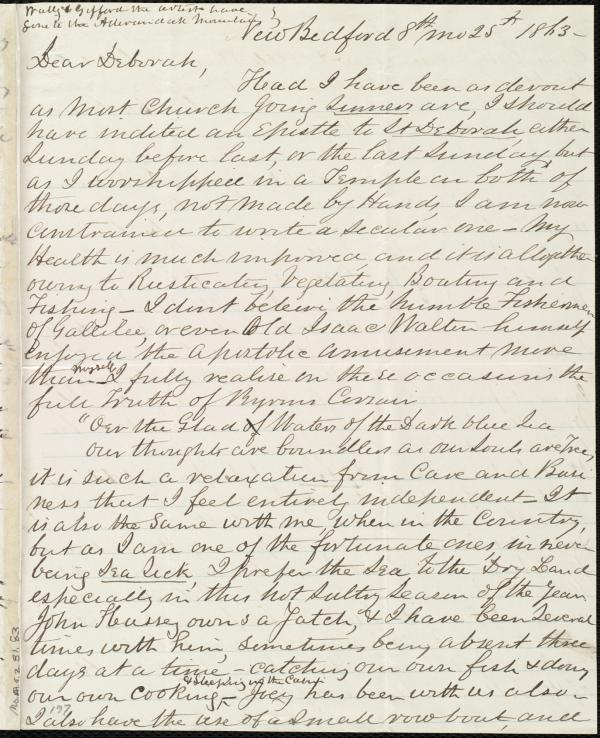 Wally & Gifford the artist have
gone to the Adirondak Mountains
New Bedford 8th mo 25th 1863-
Dear Deborah,
Head I have been as devout
as most Church going Sinners are, I should
have indited an Epistle to St Deborah, either
Sunday before last, or the last Sunday, but
as I worshipped in a Temple on both of
those days, not made by Hands, I am now
constrained to write a secular one - My
Health is much improved and it is altogether
owing to Rusticating, Vegetating, Boating and
Fishing - I dont beleive the humble Fishermen
of Gallilee, or even Old Isaac Walton himself
enjoyed the Apostolic amusement more
than myself I fully realise on these occasions the
full Truth of Byrons Corsair
"Oer the Glad of Waters of the Dark blue Sea
our thoughts are boundless as our Souls are Free,
it is such a relaxation from Care and Busi
ness that I feel entirely independent - It
is also the same with me, when in the Country,
but as I am one of the fortunate ones in never
being Sea Sick, I prefer the Sea to the Dry Land
especially in this hot Sultry Season of the Year
John Hussey owns a Yatch, & I have been several
times with him, sometimes being absent three
days at a time - catching our own fish & doing
our own cooking & sleeping in the Cabin - Joey has been with us also -
I also have the use of a small row boat, and